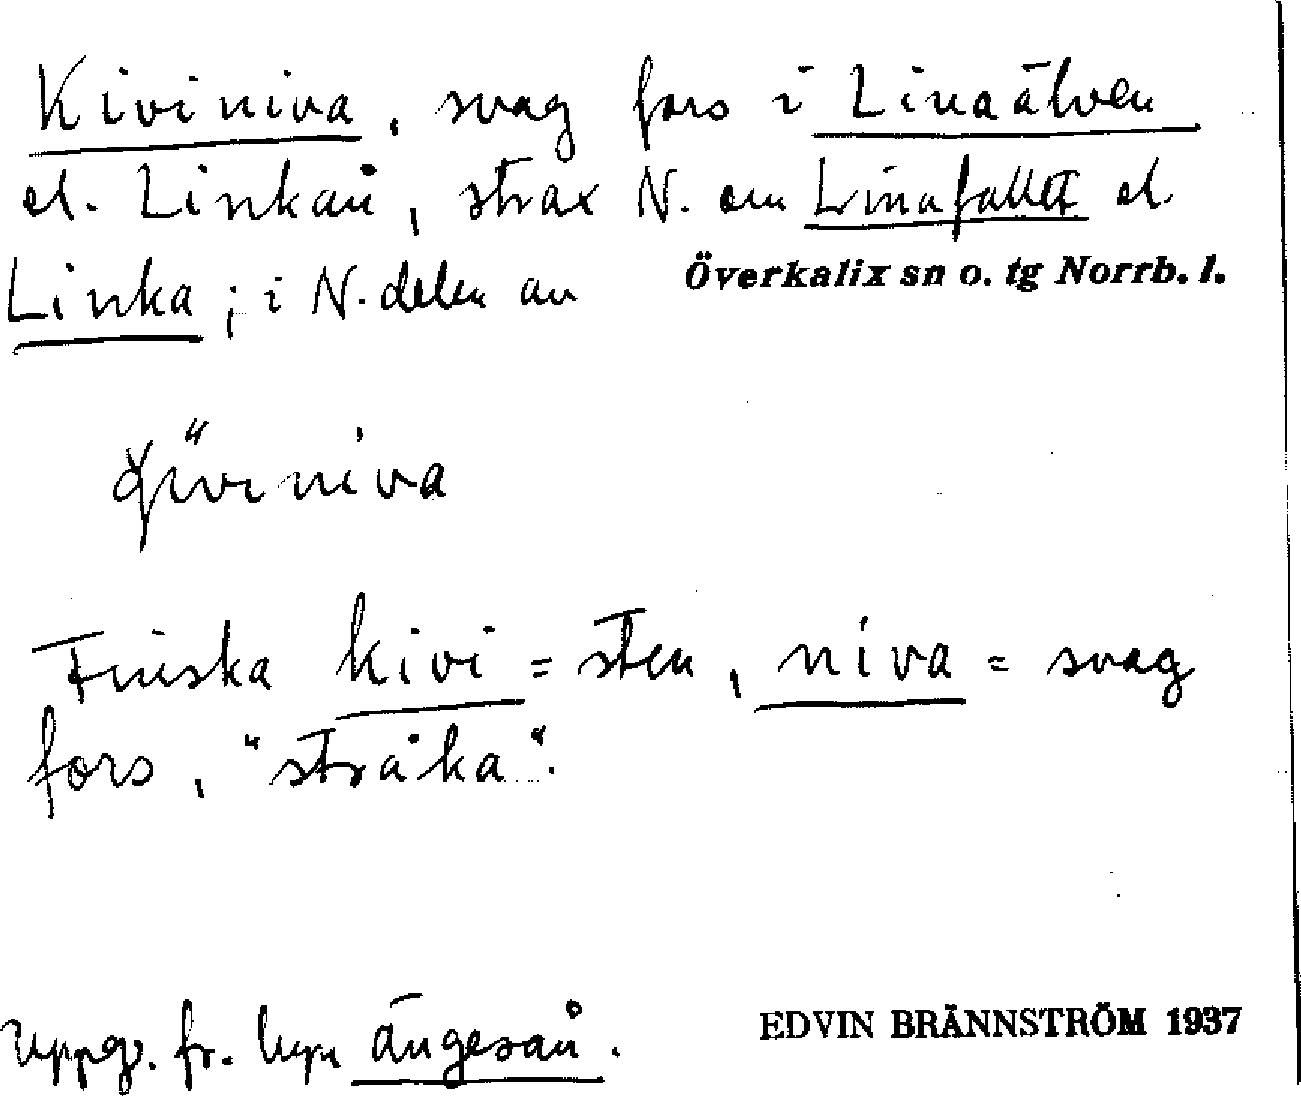 Kiviniva, svag fors i Linaälven
el. Linkån, strax N. om Linafallet el.
Linka; i N. delen av Överkalix sn o. tg Norrb. l.
niva
Finska kivi = sten, niva = svag
fors, "stråka".
Uppg. fr. byn Ängeså.
EDVIN BRÄNNSTRÖM 1937